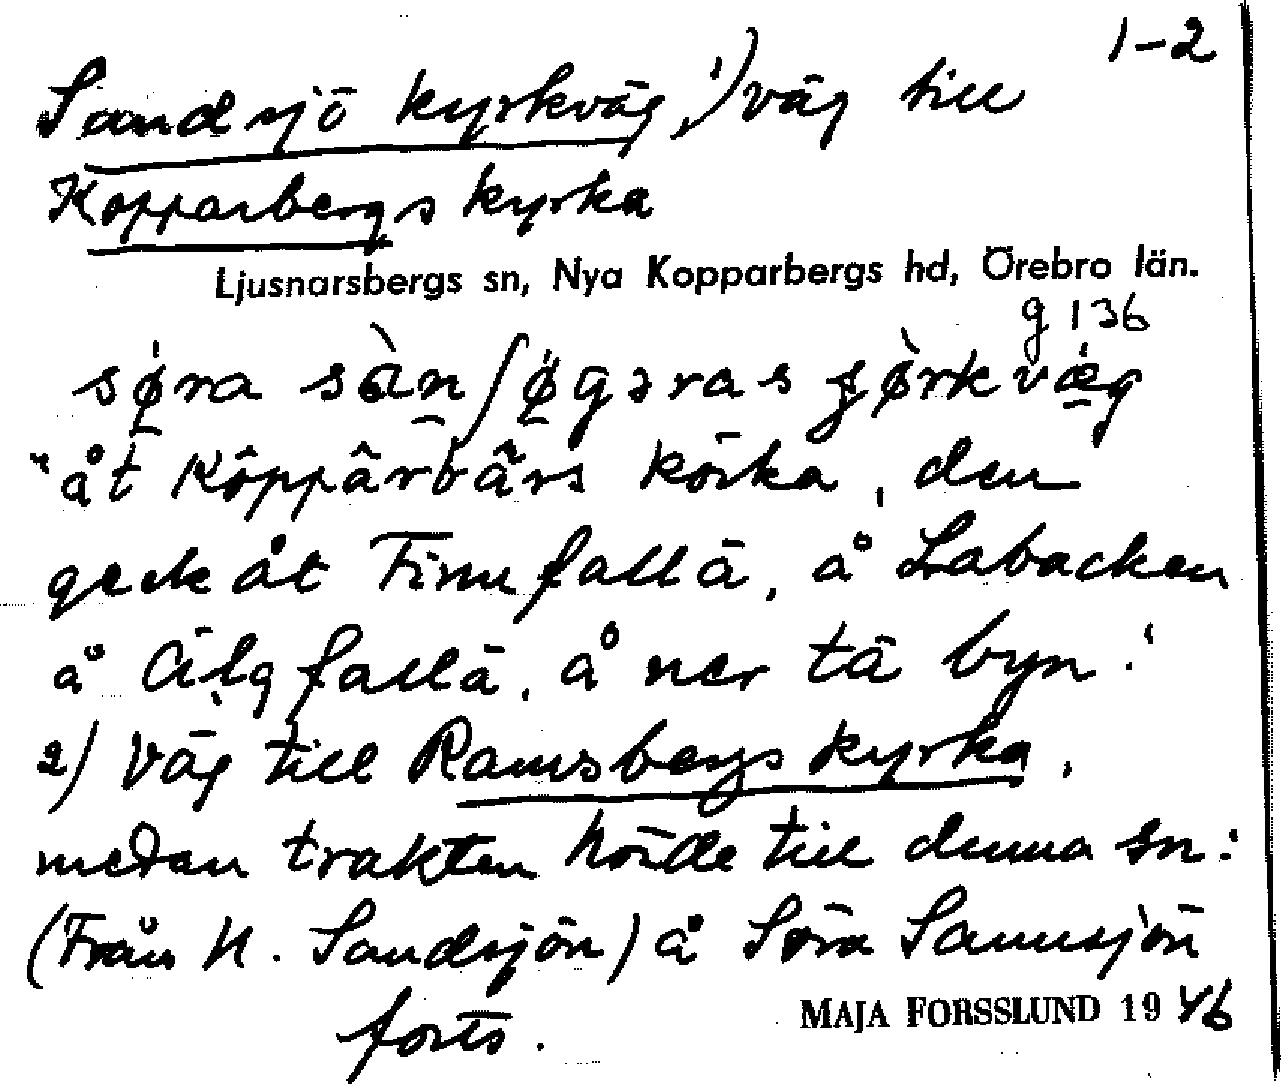 1-2
Sandsjö kyrkväg, 1) väg till
Kopparbergs kyrka
Ljusnarsbergs sn, Nya Kopparbergs hd, Örebro län.
g 136
sø̀ra sànʃø̀gəras
"åt Köppârbârs körka, den
geck åt Finnfallä, å Labacken
å Älgfallä, å ner tä byn."
2) Väg till Ramsbergs kyrka,
medan trakten hörde till denna sn:
(Från N. Sandsjön) å Söra Sannsjön
forts.
MAJA FORSSLUND 1946